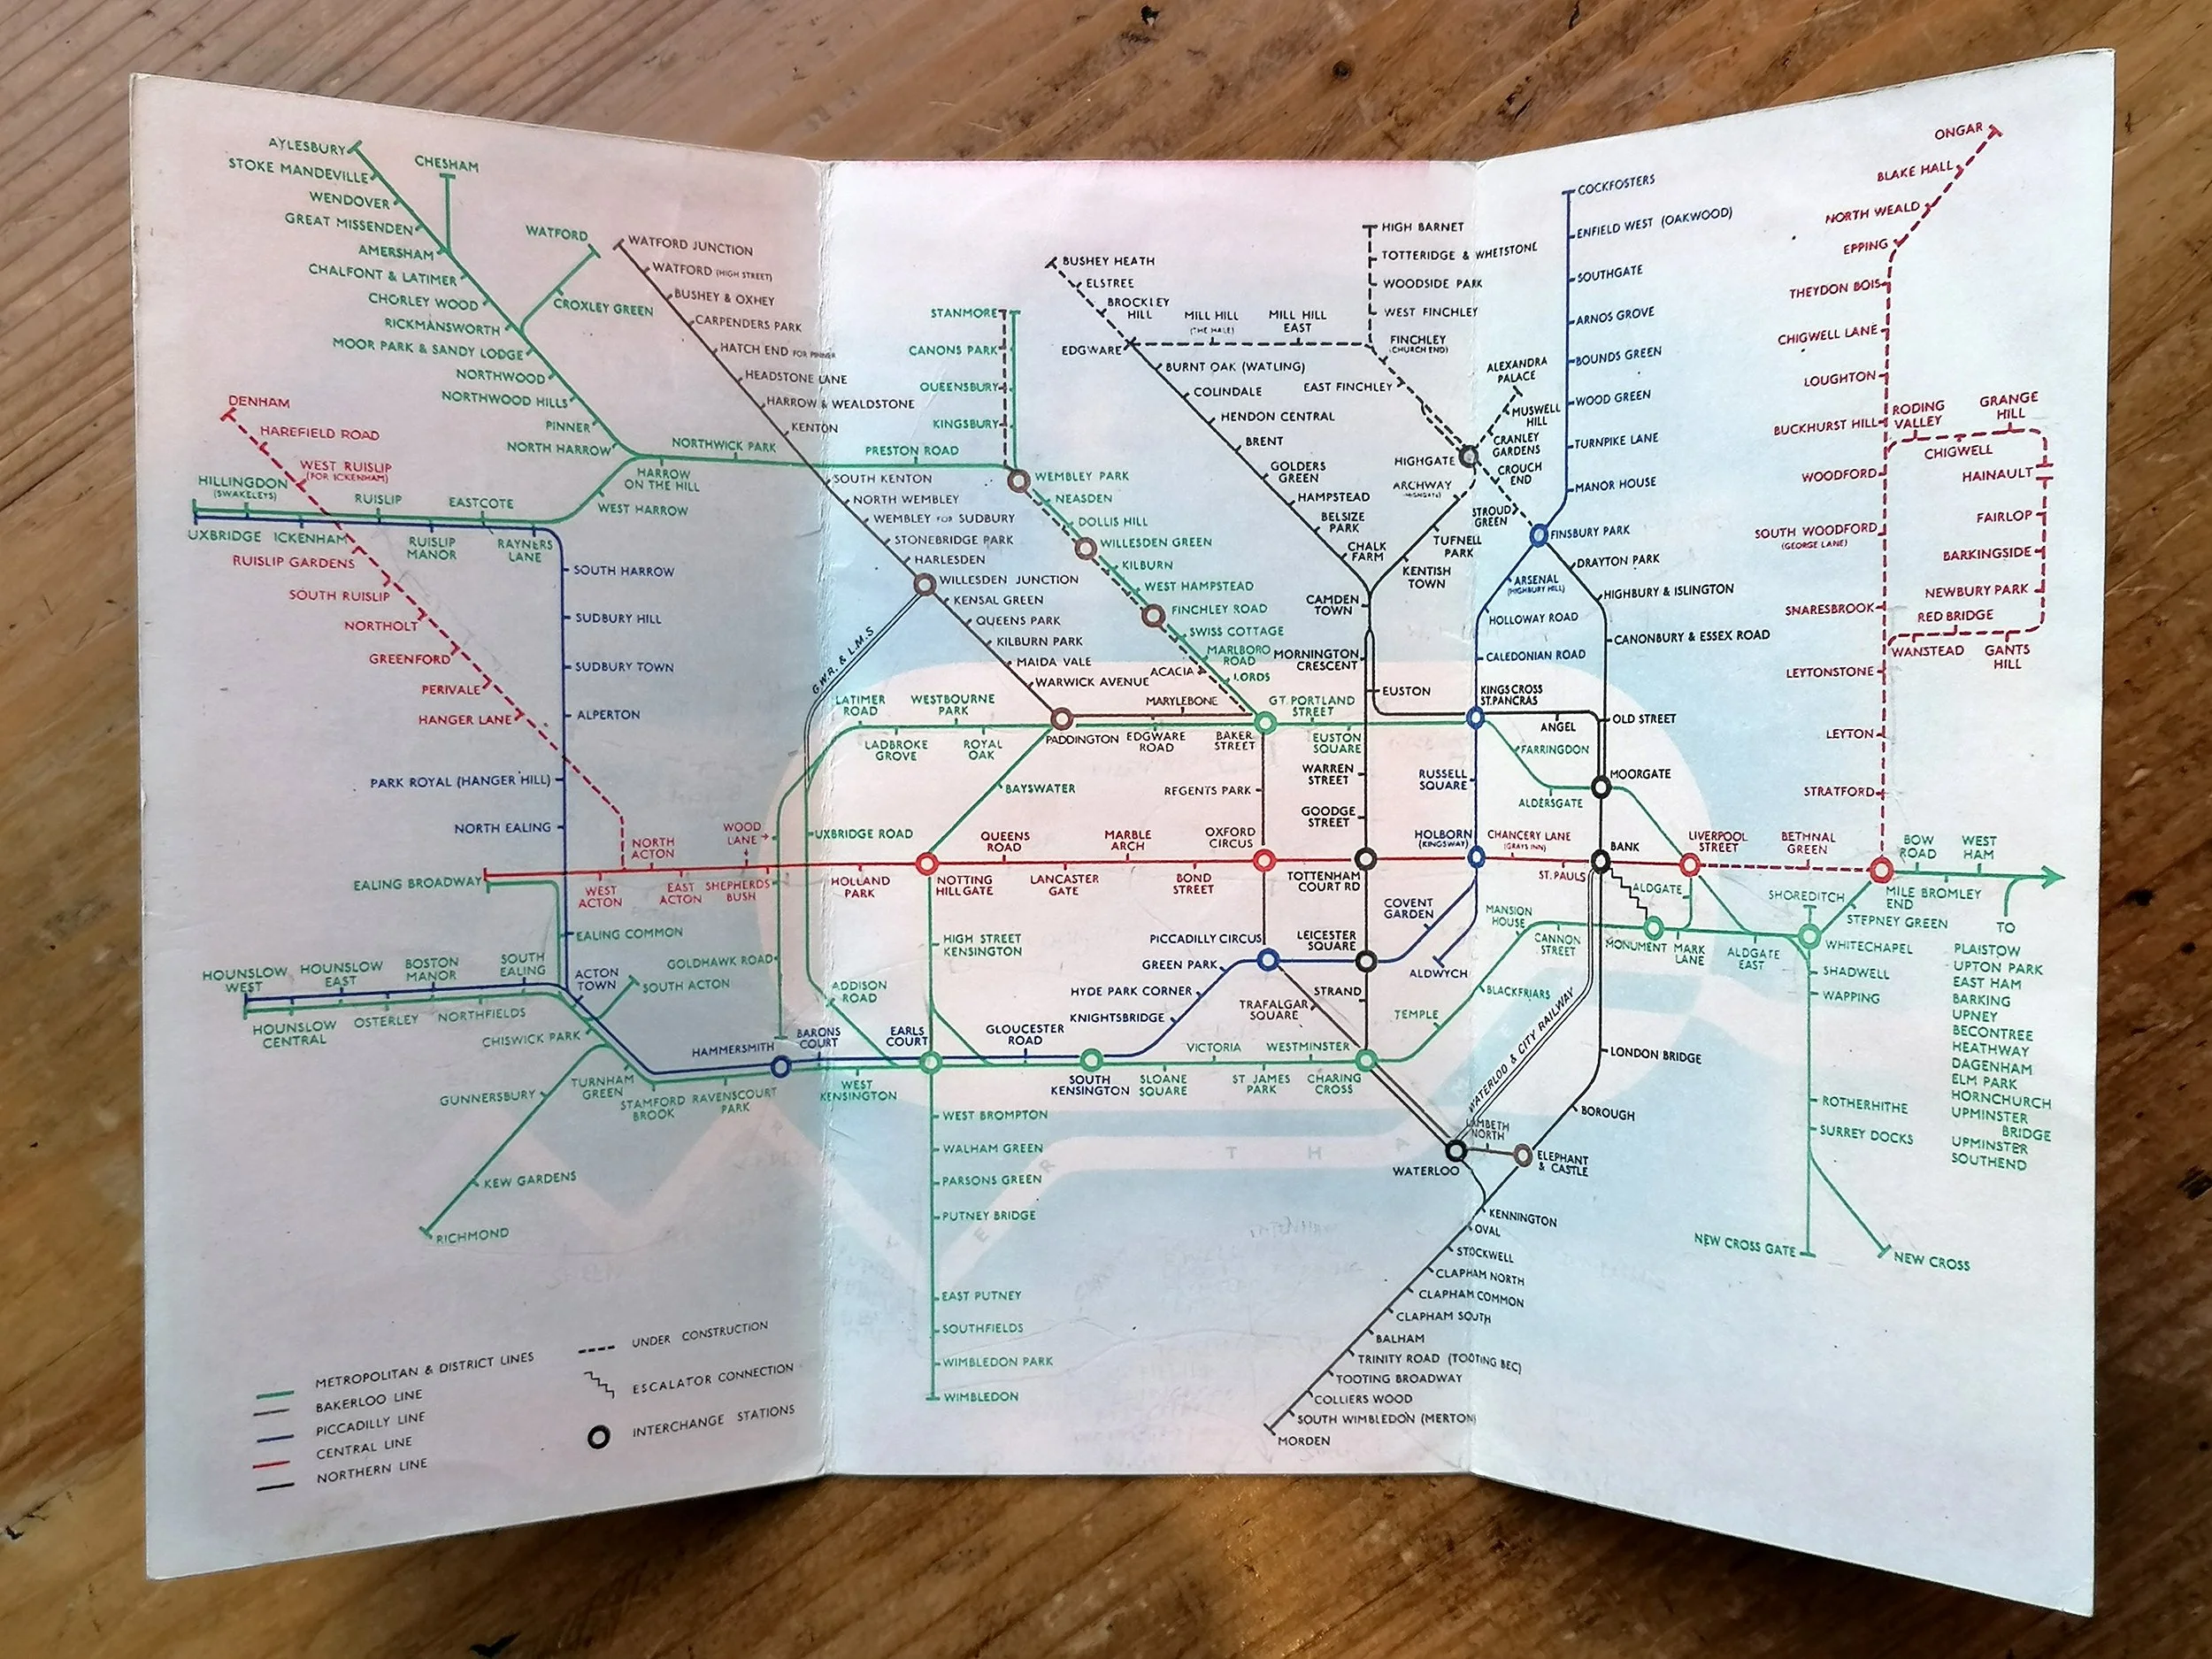 AYLESBURY
STOKE MANDEVILLE
WENDOVER
GREAT MISSENDEN
AMERSHAM
CHALFONT & LATIMER
CHORLEY WOOD
RICKMANSWORTH
MOOR PARK & SANDY LODGE
NORTHWOOD
NORTHWOOD HILLS
PINNER
NORTH HARROW
CHESHAM
WATFORD
CROXLEY GREEN
WATFORD JUNCTION
WATFORD (HIGH STREET)
BUSHEY & OXHEY
CARPENDERS PARK
HATCH END FOR PINNER
HEADSTONE LANE
HARROW & WEALDSTONE
KENTON
NORTHWICK PARK
PRESTON ROAD
HARROW
ON THE HILL
WEST HARROW
DENHAM
HAREFIELD ROAD
WEST RUISLIP
(FOR ICKENHAM)
HILLINGDON
(SWAKELEYS)
RUISLIP
EASTCOTE
UXBRIDGE
ICKENHAM
RUISLIP
MANOR
RAYNERS
LANE
RUISLIP GARDENS
SOUTH RUISLIP
NORTHOLT
GREENFORD
PERIVALE
HANGER LANE
SOUTH HARROW
SUDBURY HILL
SUDBURY TOWN
ALPERTON
PARK ROYAL (HANGER HILL)
NORTH EALING
SOUTH KENTON
NORTH WEMBLEY
WEMBLEY FOR SUDBURY
STONEBRIDGE PARK
HARLESDEN
WILLESDEN JUNCTION
KENSAL GREEN
QUEENS PARK
KILBURN PARK
MAIDA VALE
WARWICK AVENUE
G.W.R. & L.M.S
STANMORE
CANONS PARK
QUEENSBURY
KINGSBURY
WEMBLEY PARK
NEASDEN
DOLLIS HILL
WILLESDEN GREEN
KILBURN
WEST HAMPSTEAD
FINCHLEY ROAD
SWISS COTTAGE
MARLBORO
ROAD
ACACIA
LORDS
BUSHEY HEATH
ELSTREE
BROCKLEY
HILL
EDGWARE
MILL HILL
(THE HALE)
MILL HILL
EAST
HIGH BARNET
TOTTERIDGE & WHETSTONE
WOODSIDE PARK
WEST FINCHLEY
FINCHLEY
(CHURCH END)
EAST FINCHLEY
BURNT OAK (WATLING)
COLINDALE
HENDON CENTRAL
BRENT
GOLDERS
GREEN
HAMPSTEAD
BELSIZE
PARK
CHALK
FARM
ALEXANDRA
PALACE
MUSWELL
HILL
CRANLEY
GARDENS
HIGHGATE
CROUCH
END
ARCHWAY
(HIGHGATE)
STROUD
GREEN
TUFNELL
PARK
KENTISH
TOWN
CAMDEN
TOWN
MORNINGTON
CRESCENT
EUSTON
COCKFOSTERS
ENFIELD WEST (OAKWOOD)
SOUTHGATE
ARNOS GROVE
BOUNDS GREEN
WOOD GREEN
TURNPIKE LANE
MANOR HOUSE
FINSBURY PARK
ARSENAL
(HIGHBURY HILL)
HOLLOWAY ROAD
CALEDONIAN ROAD
KINGS CROSS
ST. PANCRAS
DRAYTON PARK
HIGHBURY & ISLINGTON
CANONBURY & ESSEX ROAD
OLD STREET
ANGEL
MOORGATE
ONGAR
BLAKE HALL
NORTH WEALD
EPPING
THEYDON BOIS
CHIGWELL LANE
LOUGHTON
BUCKHURST HILL
RODING
VALLEY
GRANGE
HILL
CHIGWELL
HAINAULT
WOODFORD
FAIRLOP
SOUTH WOODFORD
(GEORGE LANE)
BARKINGSIDE
NEWBURY PARK
SNARESBROOK
RED BRIDGE
WANSTEAD
GANTS
HILL
LEYTONSTONE
LEYTON
STRATFORD
LATIMER
ROAD
WESTBOURNE
PARK
LADBROKE
GROVE
ROYAL
OAK
PADDINGTON
MARYLEBONE
EDGWARE
ROAD
BAKER
STREET
GT. PORTLAND
STREET
EUSTON
SQUARE
WARREN
STREET
REGENTS PARK
GOODGE
STREET
RUSSELL
SQUARE
FARRINGDON
ALDERSGATE
BAYSWATER
UXBRIDGE ROAD
EALING BROADWAY
NORTH
ACTON
WEST
ACTON
EAST
ACTON
WOOD
LANE
SHEPHERDS
BUSH
HOLLAND
PARK
NOTTING
HILL GATE
QUEENS
ROAD
LANCASTER
GATE
MARBLE
ARCH
BOND
STREET
OXFORD
CIRCUS
TOTTENHAM
COURT RD
HOLBORN
(KINGSWAY)
CHANCERY LANE
(GRAYS INN)
ST. PAULS
BANK
LIVERPOOL
STREET
BETHNAL
GREEN
MILE
END
BOW
ROAD
WEST
HAM
BROMLEY
STEPNEY GREEN
SHOREDITCH
WHITECHAPEL
ALDGATE
ALDGATE
EAST
MARK
LANE
MONUMENT
CANNON
STREET
MANSION
HOUSE
BLACKFRIARS
TEMPLE
COVENT
GARDEN
ALDWYCH
LEICESTER
SQUARE
PICCADILLY CIRCUS
GREEN PARK
HYDE PARK CORNER
KNIGHTSBRIDGE
TRAFALGAR
SQUARE
STRAND
EALING COMMON
ACTON
TOWN
SOUTH
EALING
BOSTON
MANOR
HOUNSLOW
EAST
HOUNSLOW
WEST
HOUNSLOW
CENTRAL
OSTERLEY
NORTHFIELDS
SOUTH ACTON
CHISWICK PARK
GUNNERSBURY
KEW GARDENS
RICHMOND
TURNHAM
GREEN
STAMFORD
BROOK
RAVENSCOURT
PARK
GOLDHAWK ROAD
HAMMERSMITH
BARONS
COURT
WEST
KENSINGTON
ADDISON
ROAD
EARLS
COURT
HIGH STREET
KENSINGTON
GLOUCESTER
ROAD
SOUTH
KENSINGTON
SLOANE
SQUARE
VICTORIA
ST. JAMES
PARK
WESTMINSTER
CHARING
CROSS
WEST BROMPTON
WALHAM GREEN
PARSONS GREEN
PUTNEY BRIDGE
EAST PUTNEY
SOUTHFIELDS
WIMBLEDON PARK
WIMBLEDON
WATERLOO & CITY RAILWAY
LAMBETH
NORTH
WATERLOO
ELEPHANT
& CASTLE
LONDON BRIDGE
BOROUGH
KENNINGTON
OVAL
STOCKWELL
CLAPHAM NORTH
CLAPHAM COMMON
CLAPHAM SOUTH
BALHAM
TRINITY ROAD (TOOTING BEC)
TOOTING BROADWAY
COLLIERS WOOD
SOUTH WIMBLEDON (MERTON)
MORDEN
SHADWELL
WAPPING
ROTHERHITHE
SURREY DOCKS
NEW CROSS GATE
NEW CROSS
TO
PLAISTOW
UPTON PARK
EAST HAM
BARKING
UPNEY
BECONTREE
HEATHWAY
DAGENHAM
ELM PARK
HORNCHURCH
UPMINSTER
BRIDGE
UPMINSTER
SOUTHEND
METROPOLITAN & DISTRICT LINES
BAKERLOO LINE
PICCADILLY LINE
CENTRAL LINE
NORTHERN LINE
UNDER CONSTRUCTION
ESCALATOR CONNECTION
INTERCHANGE STATIONS